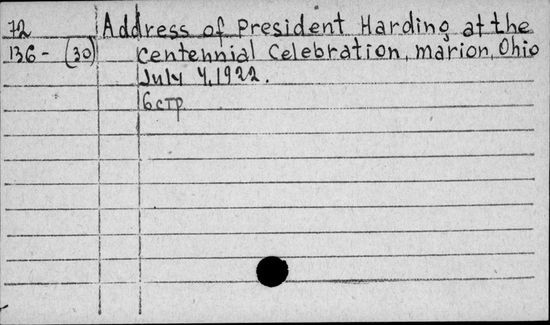 72 Address of President Harding at the
136 - (30) Centennial Celebration, Marion, Ohio
July 4, 1922.
6 стр